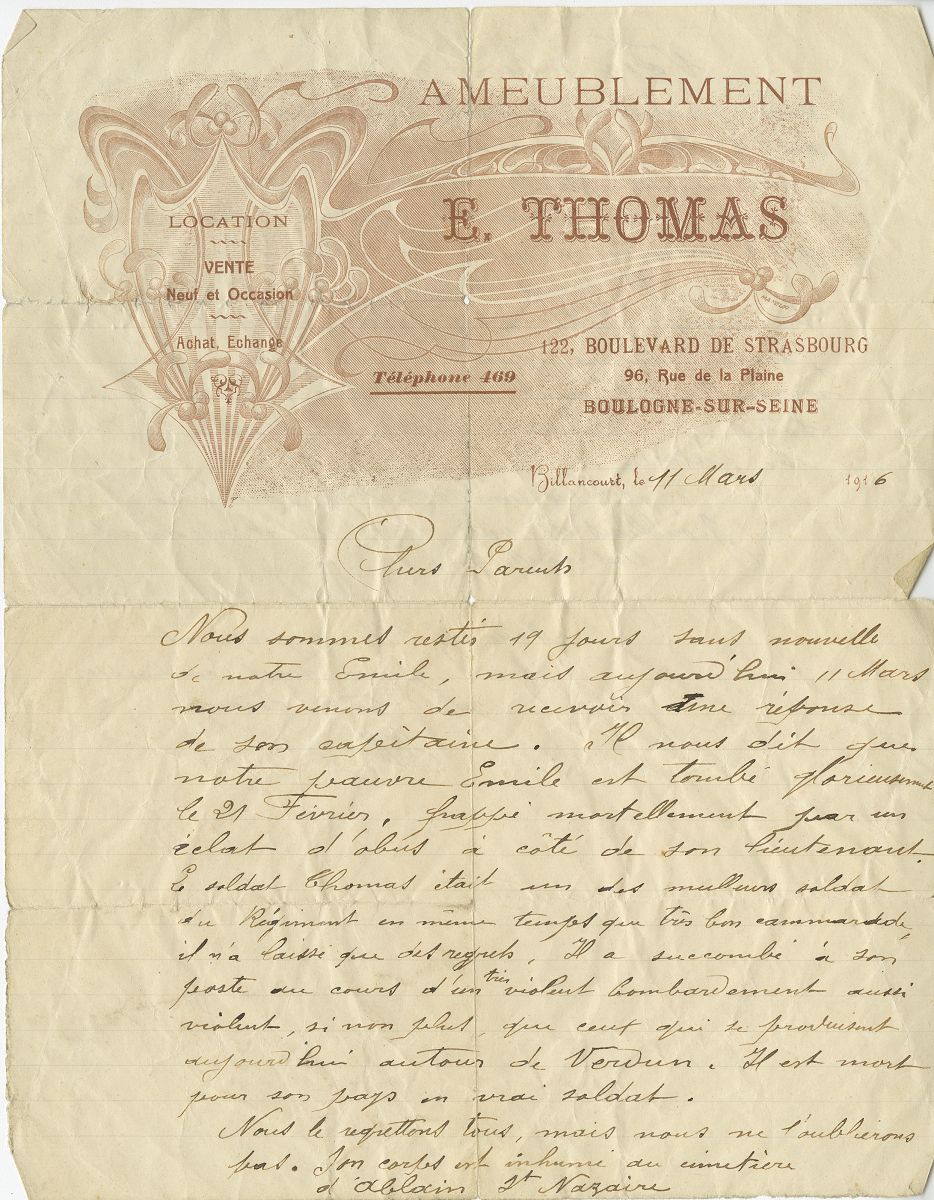 AMEUBLEMENT
E. THOMAS
LOCATION
VENTE
Neuf et Occasion
Achat, Echange
Téléphone 469
122, BOULEVARD DE STRASBOURG
96, Rue de la Plaine
BOULOGNE-SUR-SEINE
Billancourt, le 11 Mars 1916
Chers Parents
Nous sommes restés 19 jours sans nouvelle
de notre Emile, mais aujourd'hui 11 Mars
nous venons de recevoir une réponse
de son capitaine. Il nous dit que
notre pauvre Emile est tombé glorieusement
le 21 Février, frappé mortellement par un
éclat d'obus à côté de son lieutenant.
Le soldat Thomas était un des meilleurs soldat
du Régiment en même temps que très bon cammarade,
il n'a laissé que des regrets. Il a succombé à son
poste au cours d'un très violent bombardement aussi
violent, si non plus, que ceux qui se produisent
aujourd'hui autour de Verdun. Il est mort
pour son pays en vrai soldat.
Nous le regrettons tous, mais nous ne l'oublierons
pas. Son corps est inhumé au cimetière
d'Ablain St Nazaire